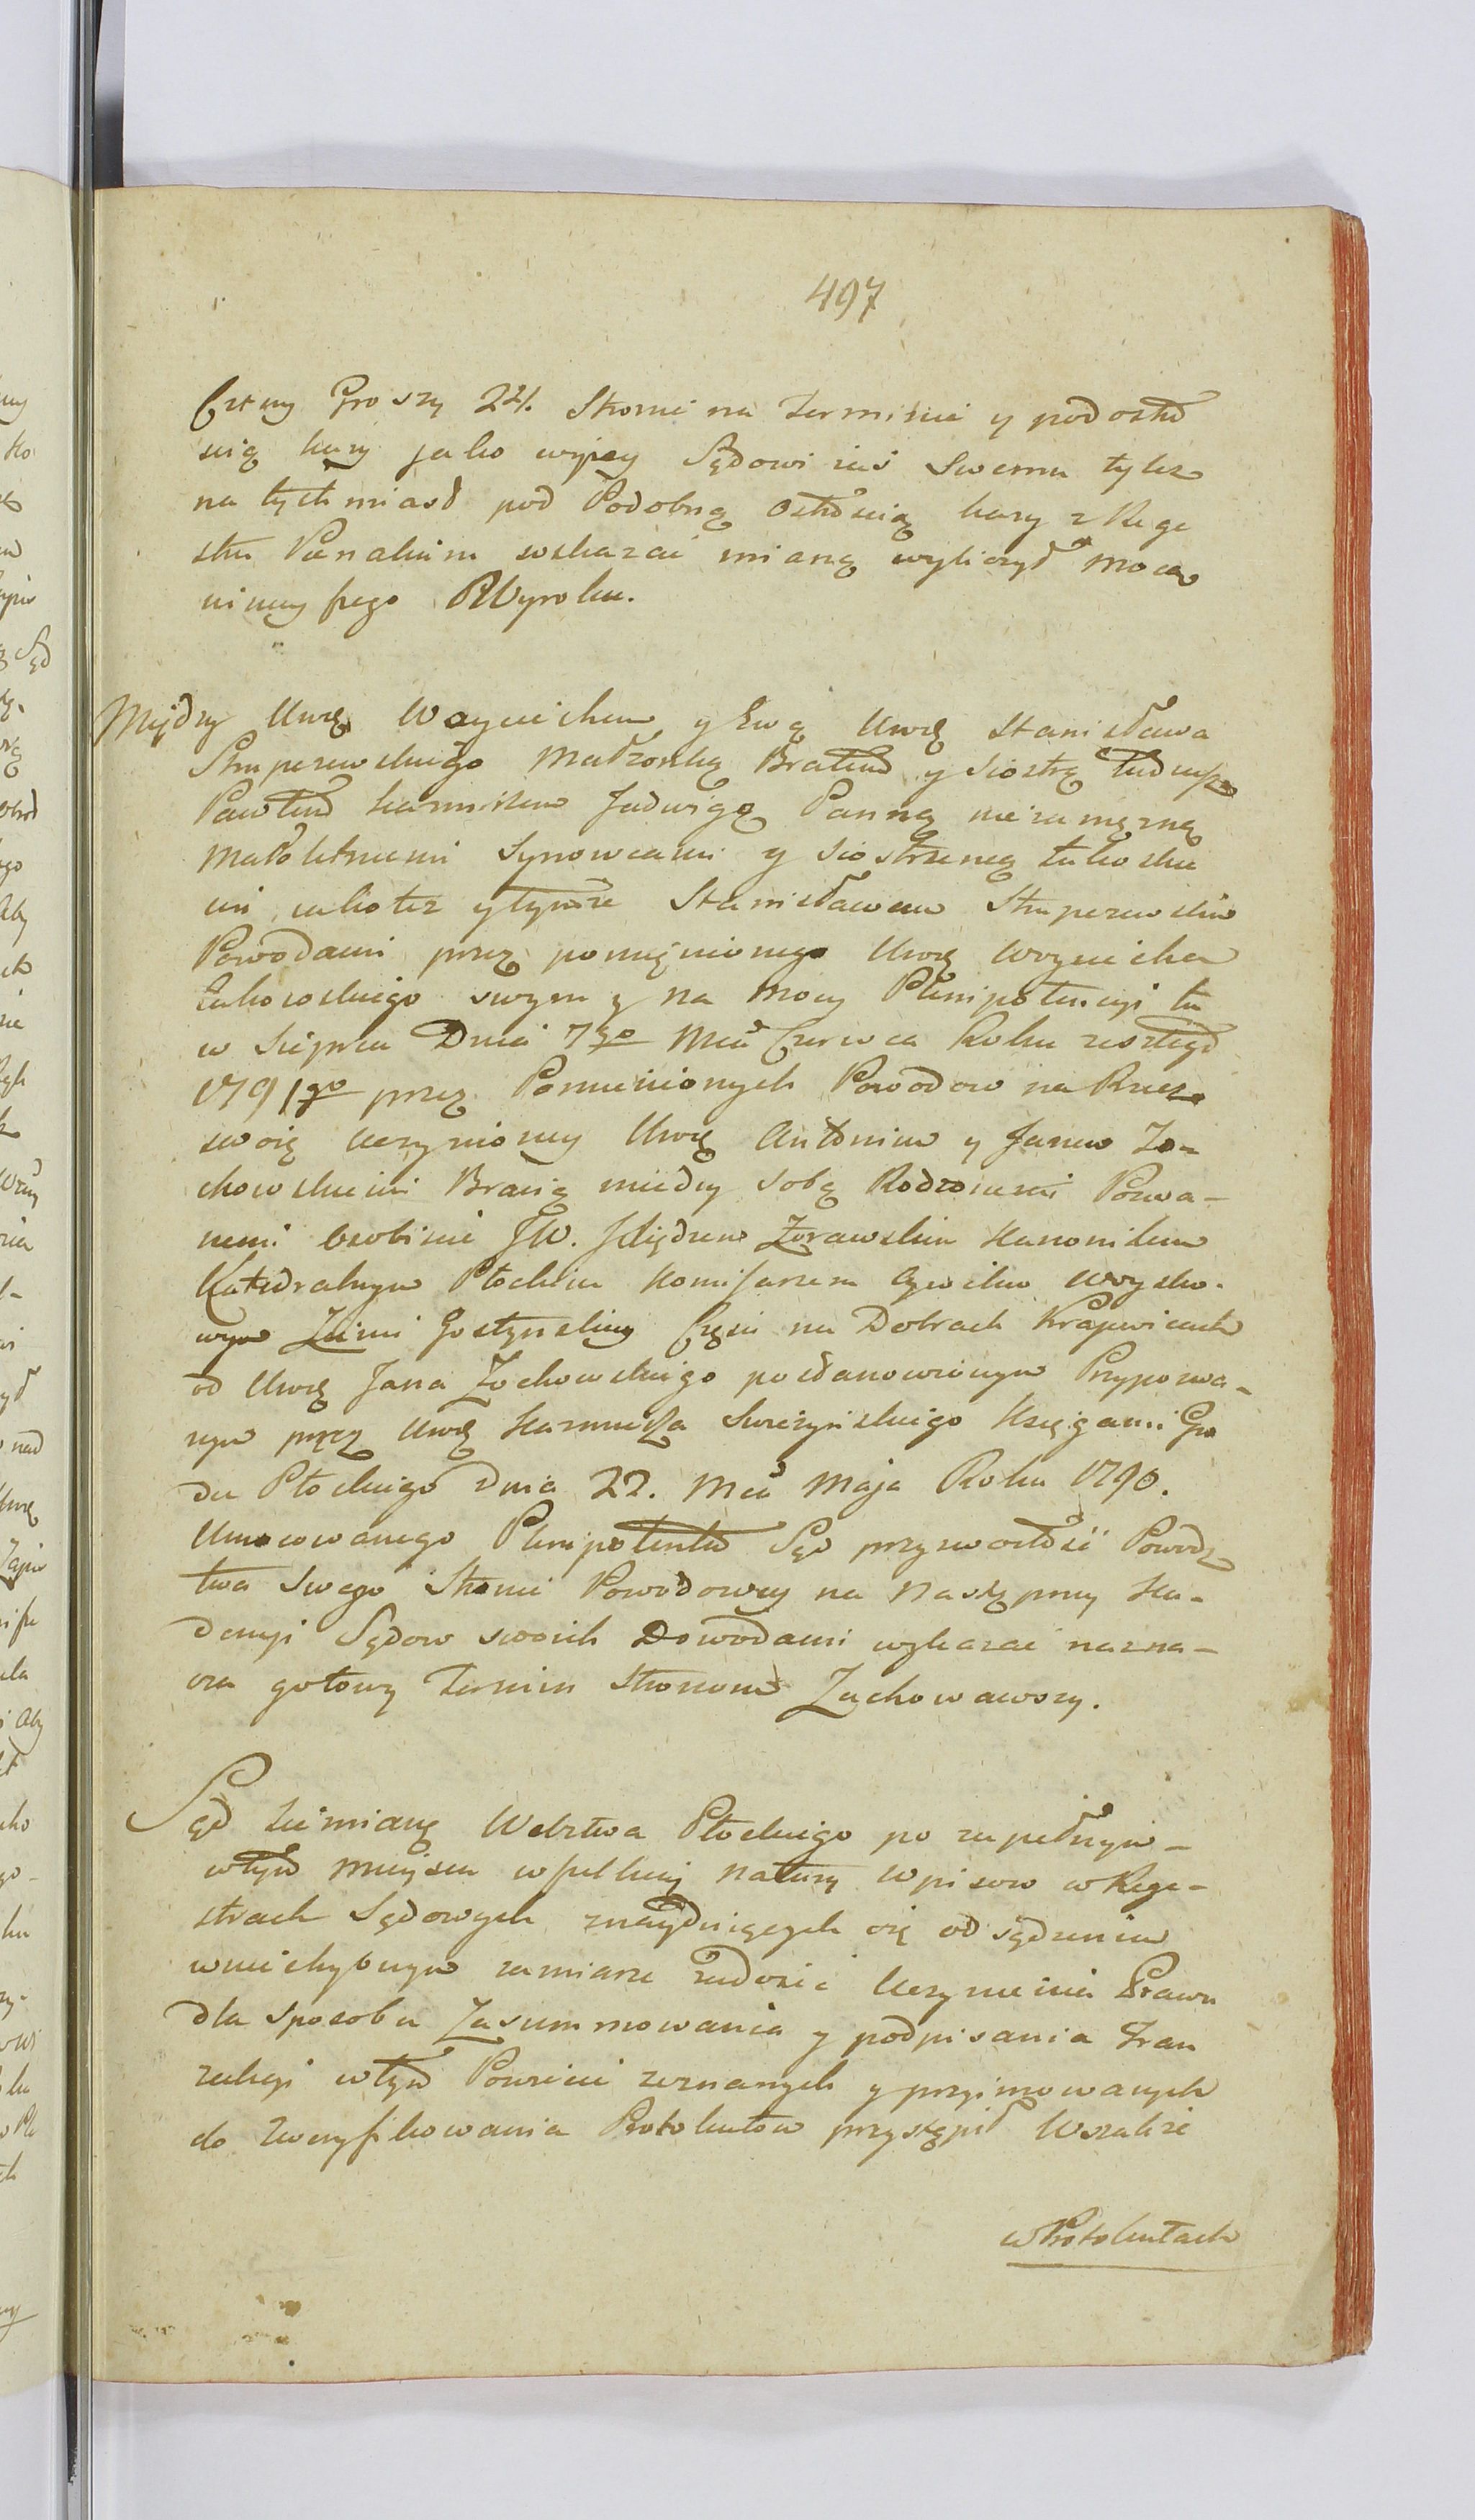 497
Czterny Groszy 24. Stronie na Terminie y pod ostro
scią kary jako wyżey Sędowi zaś Swemu tyleż
na tychmiast pod Podobną Ostrością kary z Rege
stru Pœnalium wskazać mianą wyliczył Mocą
ninieyszego Wyroku.
Między Urod. Woyciechem y Ewą Urod. Stanisława
Małżonką Bratem y Siostrą tudzież
Pawłem Kazimirzem Jadwigą Panną niezamężną
Małoletniemi Synowcami y Siostrzenicą
jakoteż y tymże Stanisławem
Powodami przez pomienionego Urod. Woyciecha
swym y na mocy Plenipotencyi tu
w Sierpcu Dnia 7go Mca Czerwca Roku zeszłego
1791go przez Pomienionych Powodow na Rzecz
swoię uczynioney Urod. Antonim y Janem Zo-
chowskiemi Bracią między sobą Rodzonemi Pozwa-
nemi Osobiscie JW. Xiędzem Zorawskim Kanonikiem
Katedralnym Płockim Komisarzem Cywilno Woysko-
wym Ziemi Gostynskiey Części na Dobrach Krajewicach
od Urod. Jana Zochowskiego postanowionym Przypozwa-
nym przez Urod. Kazmirza Księgami Gro
du Płockiego Dnia 22. Mca Maja Roku 1790.
Umocowanego Plenipotenta Sąd przyzwoitość Powodz
twa Swego Stronie Powodowey na Następney Ka-
dencyi Sądow swoich Dowodami wykazać nazna-
cza gotowy Termin Stronom Zachowawszy.
Sąd Ziemianę Wdztwa Płockiego po zupełnym
w tym mieyscu wszelkiey natury Wpisow w Rege-
strach Sądowych znayduiących się odsądzeniu
w niechybnym zamiarze zadosić Uczynienia Prawu
dla sposobu Zasummowania y podpisania Tran
zakcyi w tym Powiecie zeznanych y przyimowanych
do zweryfikowania Protokułow przystąpił Wszakże
w Protokułach